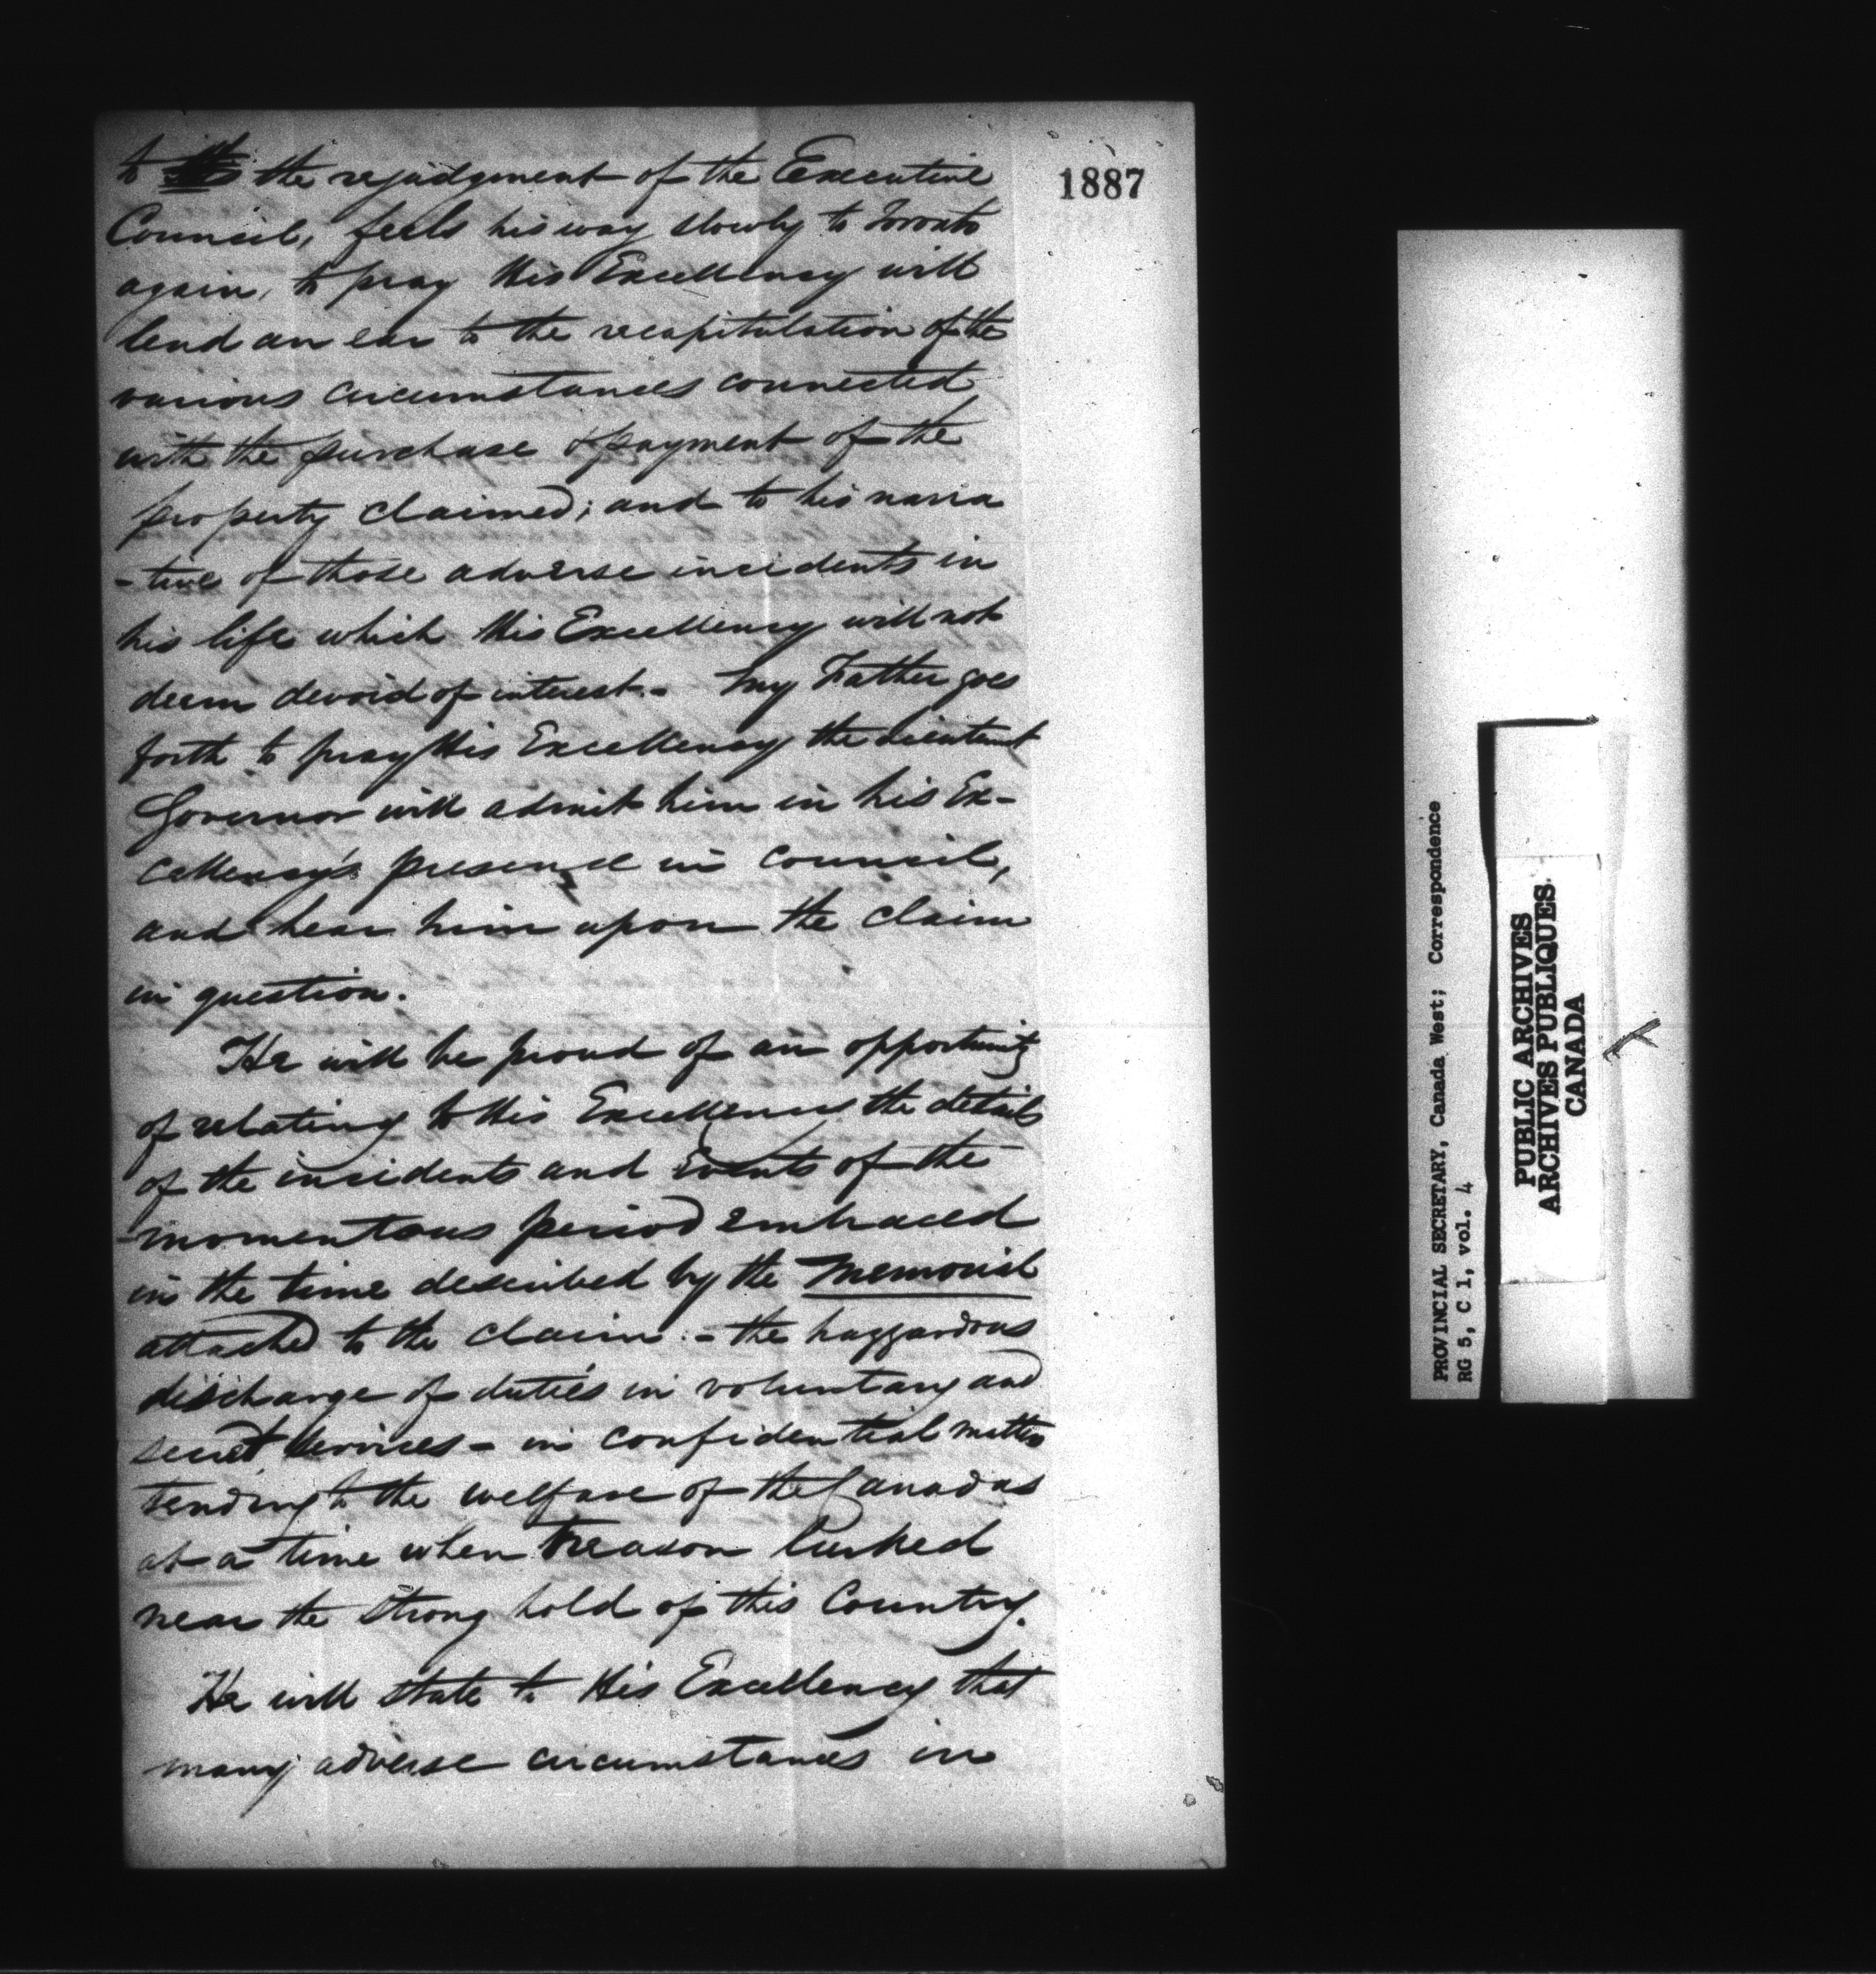 to the rejudgment of the Executive
Council, feels his way slowly to Toronto
again, to pray His Excellency will
lend an ear to the recapitulation of the
various circumstances connected
with the purchase & payment of the
property claimed; and to his narra
-tive of those adverse incidents in
his life which His Excellency will not
deem devoid of interest.- My Father goes
forth to pray His Excellency the Lieutent
Governor will admit him in his Ex-
cellency's presence in Council,
and hear him upon the claim
in question.
He will be proud of an opportunity
of relating to His Excellency the details
of the incidents and Events of the
momentous period embraced
in the time described by the Memorial
attached to the claim:- the haggardous
discharge of duties in voluntary and
secret services - in confidential matters
tending to the welfare of the Canadas
at a time when treason lurked
near the strong hold of this Country.
He will state to His Excellency that
many adverse circumstances in
1887
PROVINCIAL SECRETARY, Canada West; Correspondence
RG 5, C 1, vol. 4
PUBLIC ARCHIVES
ARCHIVES PUBLIQUES
CANADA